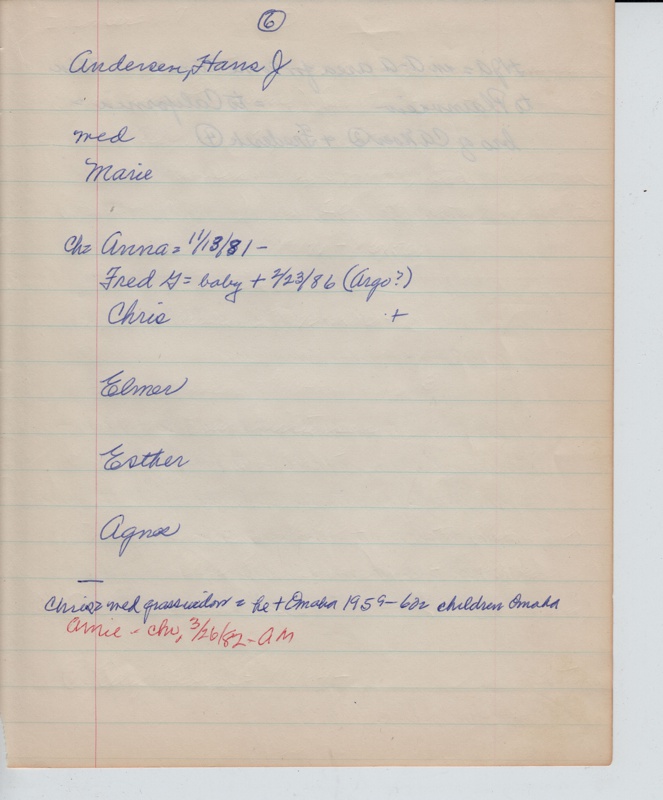 6
Andersen, Hans J
med
Marie
ch= Anna = 11/13/81 -
Fred G = baby + 2/23/86 (Argo?)
Chris +
Elmer
Esther
Agnes
Chris = med grasswidow = he + Omaha 1959-60= children Omaha
Amie - chr, 3/26/82 - AM